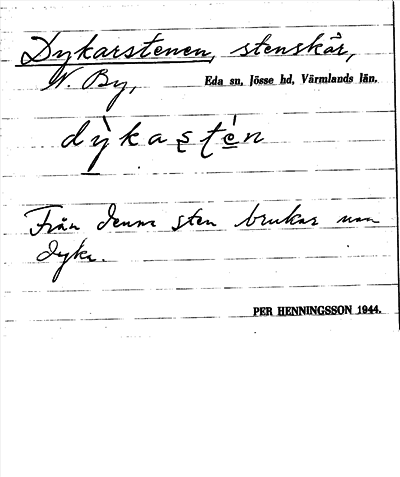 Dykarstenen, stenskär,
N. By, Eda sn, Jösse hd, Värmlands län.
dỳkas̨tén
Från denna sten brukar man
dyka.
PER HENNINGSSON 1944.